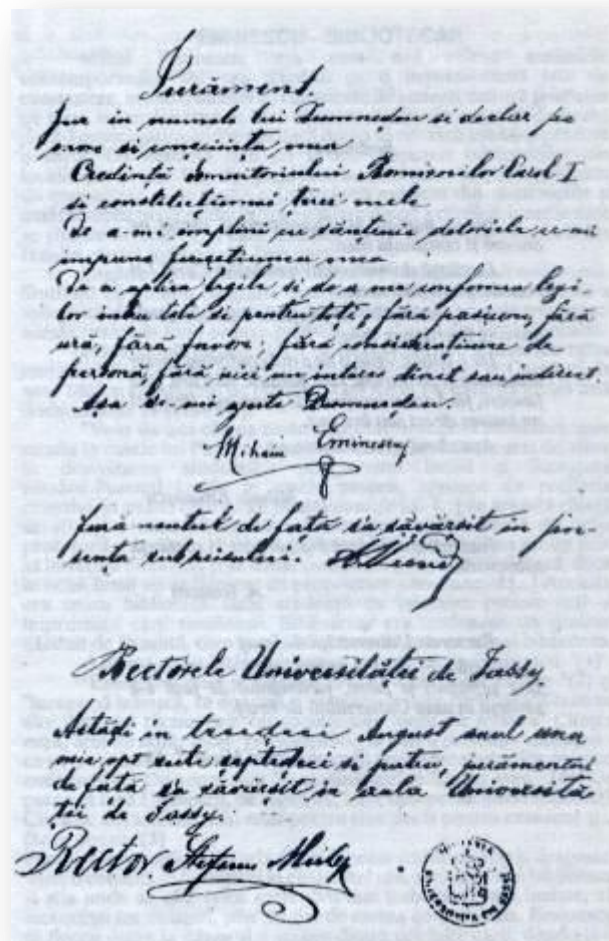 Jurăment.
Jur in numele lui Dumnezeu si declar pe
onore si consciinta mea
Credință Domnitoriului Romanilor Carol I
si constitutiunei terei mele
De a-mi implini cu sântenie detoriele ce-mi
impune funcțiunea mea
De a aplica legile, si de a me conforma legi-
lor intru tote si pentru toti; fără pasiune, fără
ură, fără favore; fără considerațiune de
personă, fără nici un interes direct sau indirect.
Așa se-mi ajute Dumnezeu.
Mihaiu Eminescu
Jurămentul de față s'a săvârsit in pre-
sența subscrisului.
Rectorele Universităței de Jassy
Astăți in treideci August anul una
mie opt sute septedeci si patru, jurămentul
de fata s'a săvârsit in aula Universită
tii de Jassy.
Rector, Stefanu Micle